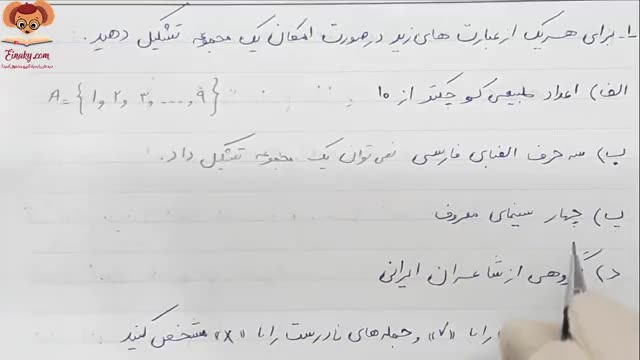 Einaky.com
۱- برای هر یک از عبارت های زیر در صورت امکان یک مجموعه تشکیل دهید.
الف) اعداد طبیعی کوچکتر از ۱۰ A={۱,۲,۳,...,۹}
ب) سه حرف الفبای فارسی نمی توان یک مجموعه تشکیل داد.
پ) چهار سینمای معروف
د) گروهی از شاعران ایرانی
را با «✓» و جمله های نادرست را با «×» مشخص کنید